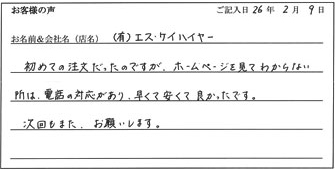 お客様の声 ご記入日 26 年 2 月 9 日
お名前&会社名(店名) (有)エス・ケイハイヤー
初めての注文だったのですが、ホームページを見てわからない
所は、電話の対応があり、早くて安くて良かったです。
次回もまた、お願いします。